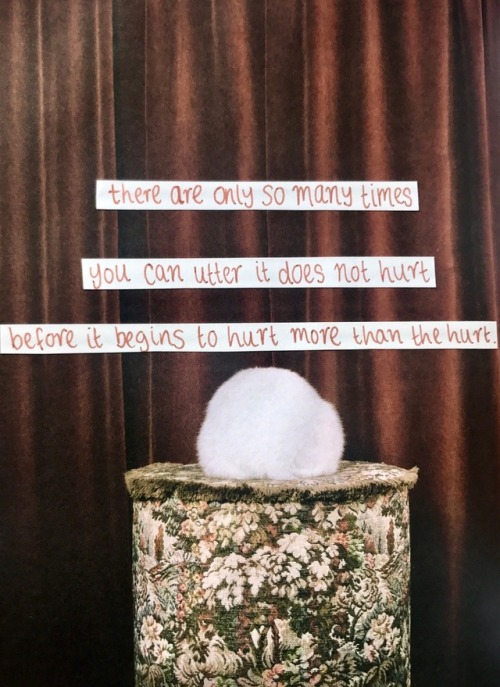 there are only so many times
you can utter it does not hurt
before it begins to hurt more than the hurt.